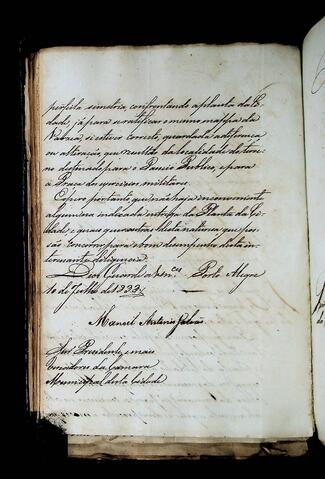 perfeita simetria, confrontando a planta da Ci-
dade, já para se ratificar o mesmo mappa de
Nabuco, si estiver correcto, guardada a diferença
ou alteração, que resultão da localidade do terre-
no destinado para o Passeio Publico, e para
a Praça dos exercicios militares.
Espero portanto que não haja inconveniente
algum em a indicada entrega da Planta da Ci-
dade, e quaes quer outras desta natureza que pos-
são concorrer para o bom desempenho desta in-
teressante deligencia.
Deos Guarde a Vm.ces Porto Alegre
10 de Julho de 1833
Manoel Antonio Galvão
Snrs Presidente, e mais
Vereadores da Camara
Municipal desta Cidade